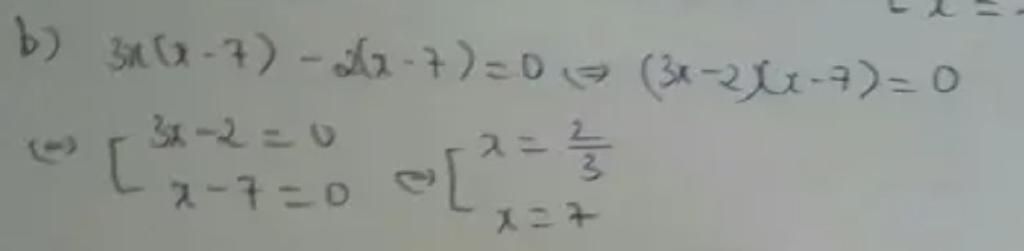 x =
b) 3x(x-7) - 2(x-7) = 0 ⇔ (3x-2)(x-7) = 0
⇔ [ 3x-2 = 0 ⇔ [ x = 2/3
x-7 = 0 x = 7